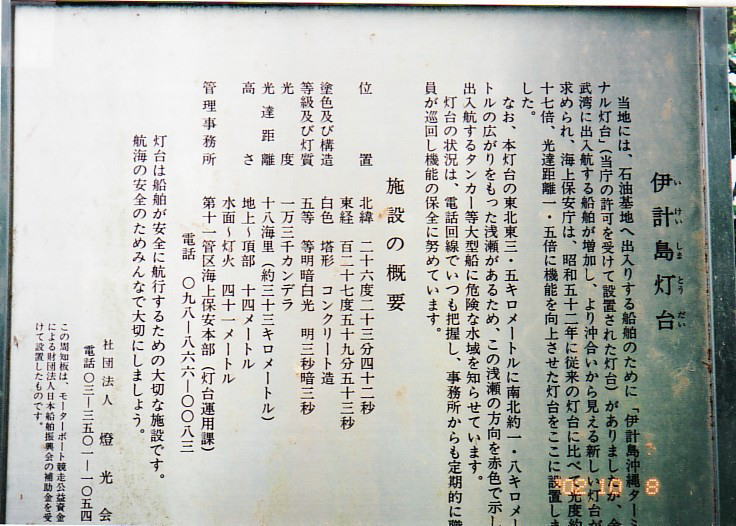 伊計島灯台
いけいしまとうだい
当地には、石油基地へ出入りする船舶のために「伊計島沖縄ターミ
ナル灯台」(当庁の許可を受けて設置された灯台)がありましたが、金
武湾に出入航する船舶が増加し、より沖合いから見える新しい灯台が
求められ、海上保安庁は、昭和五十二年に従来の灯台に比べて光度約
十七倍、光達距離一・五倍に機能を向上させた灯台をここに設置しま
した。
なお、本灯台の東北東三・五キロメートルに南北約一・八キロメー
トルの広がりをもった浅瀬があるため、この浅瀬の方向を赤色で示し
出入航するタンカー等大型船に危険な水域を知らせています。
灯台の状況は、電話回線でいつも把握し、事務所からも定期的に職
員が巡回し機能の保全に努めています。
施設の概要
位置 北緯 二十六度二十三分四十二秒
東経 百二十七度五十九分五十三秒
塗色及び構造 白色 塔形 コンクリート造
等級及び灯質 五等 等明暗白光 明三秒暗三秒
光度 一万三千カンデラ
光達距離 十八海里(約三十三キロメートル)
高さ 地上〜頂部 十四メートル
水面〜灯火 四十一メートル
管理事務所 第十一管区海上保安本部(灯台運用課)
電話 〇九八―八六六―〇〇八三
灯台は船舶が安全に航行するための大切な施設です。
航海の安全のためみんなで大切にしましょう。
社団法人 燈光会
電話〇三―三五〇一―一〇五四
この周知板は、モーターボート競走公益資金
による財団法人日本船舶振興会の補助金を受
けて設置したものです。
'02 10 8